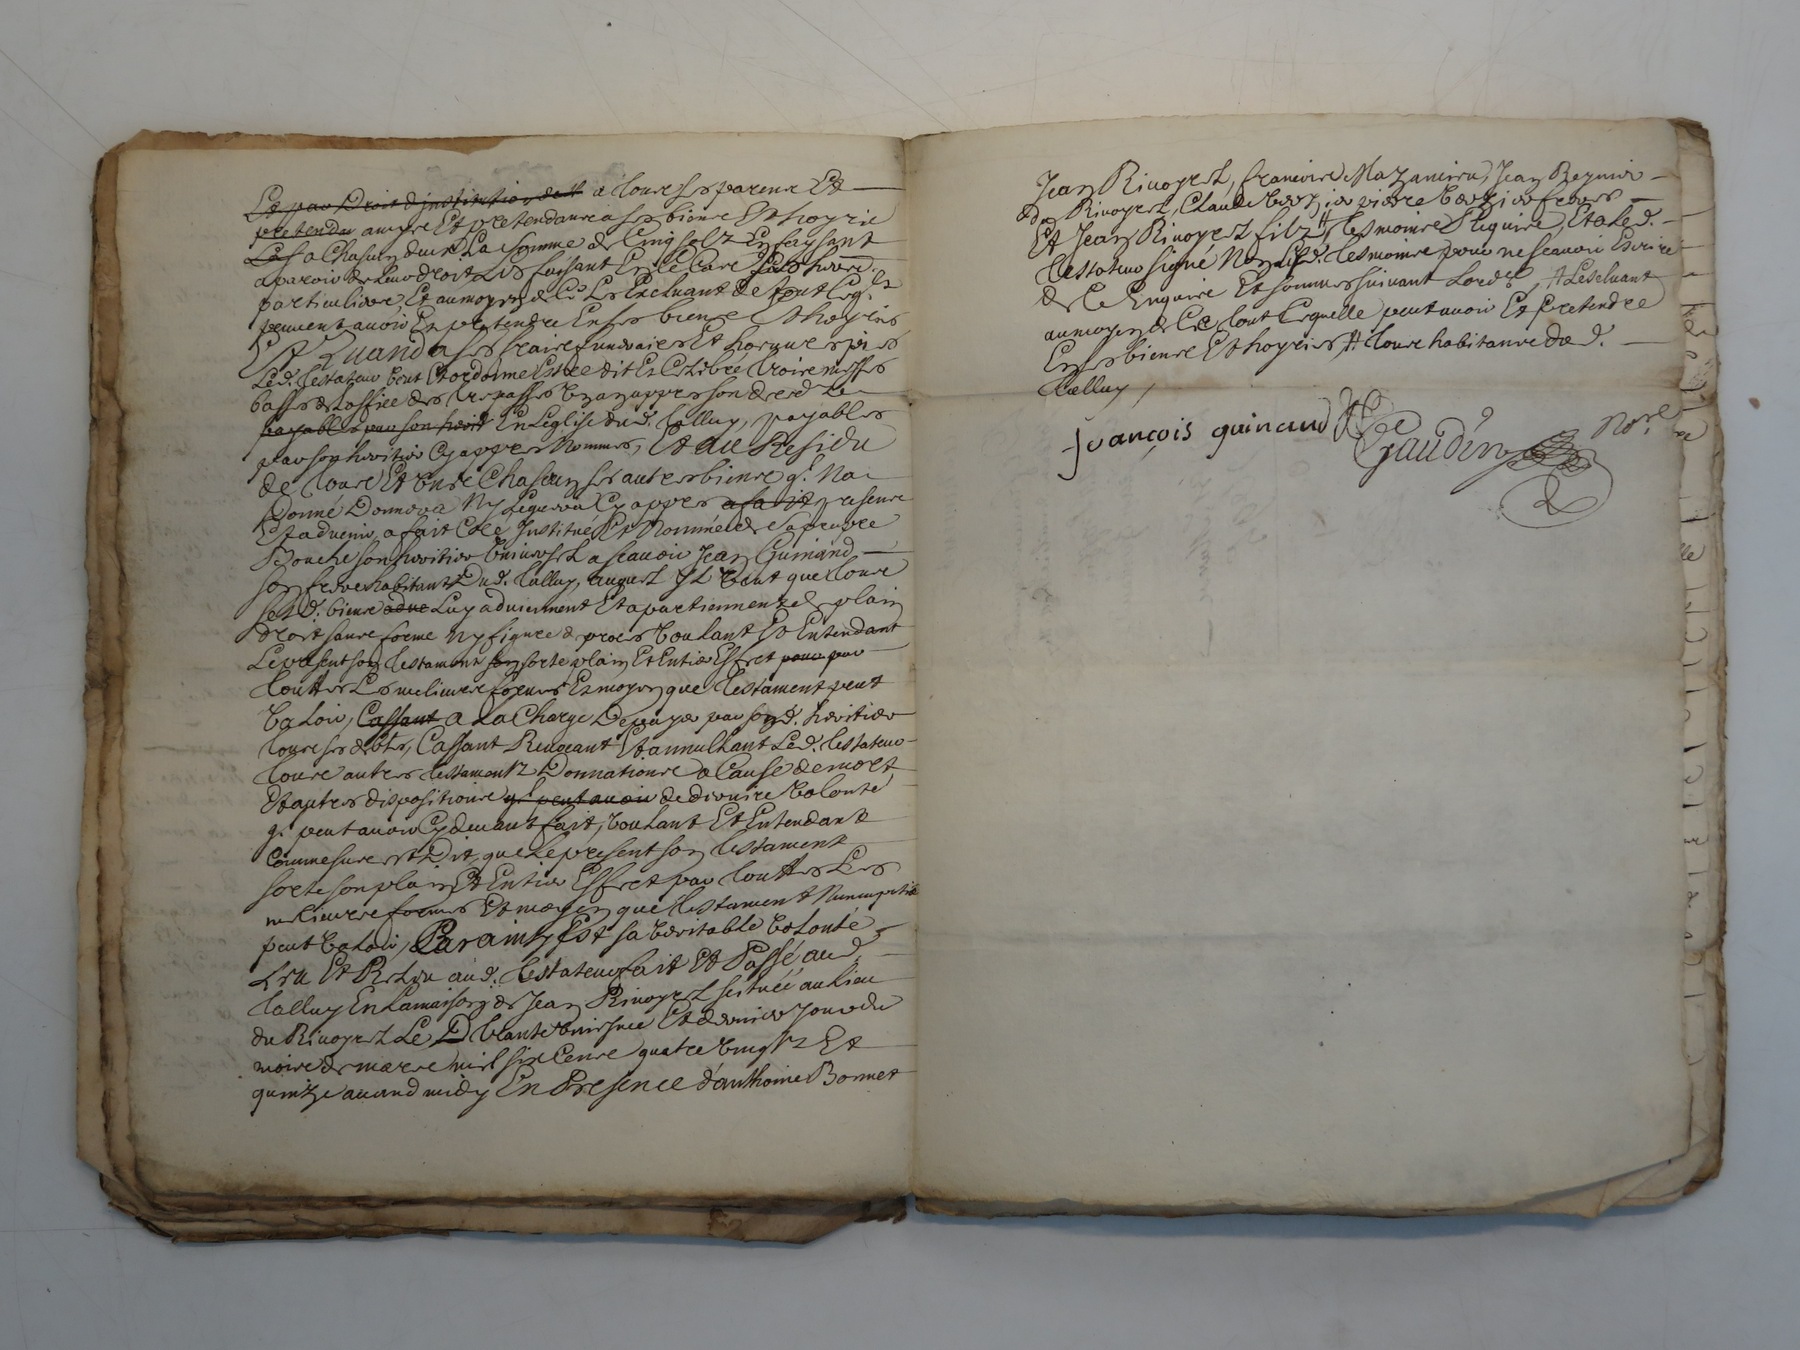 Et par Droit d'institution dell a tous ses parens Et
pretendu autre Et pretendans a ses biens Et hoyrie
Las a Chascun deux La somme de Cinq solz En faysant
aparoir de Leur droit Les faisant En Ce Cas ses hoirs
particuliers Et au moyen de Ce Les Excluant de tout Ce q.ls
peuvent avoir Et pretendre En ses biens Et hoyries
Et Quand a ses fraix funeraires Et hoeuures pies
Led. testateur Veut Et ordonne Estre dit Et Celebré trois messes
basses de Loffice des trespassés Un an appres son deced
payables par son herit En Leglise dud. talluy, payables
par son heritier Cy appres Nommé, Et au Residu
de tous Et Uns Chascun ses autres biens q. Na
Donné Donnera Ny Leguera Cy appres a fait presens
Et aduenir, a fait Cree Institue Et Nommé de sa propre
Bouche son heritier Uniuersel a scauoir Jean Guinand
son frere habitant Dud. talluy, auquel Il Veut que tous
sesd. biens adue Luy aduiennent Et apartiennent de plain
droit sans forme Ny figure de proces Voulant Et Entendant
Le present son testament son sorte plain Et Entier Effect pour par
touttes Les melieures formes Et moyen que testament peut
Valoir, Cassant a La Charge De payer par sond. heritier
tous ses debtes, Cassant Reuocant Et annullant Led. testateur
tous autres testamentz Donnations a Cause de mort
Et autres dispositions q.l peut auoir de derniere Volonté
q. peut auoir Cy deuant fait, Voulant Et Entendant
Comme sus est Dit que Le present son testament
sorte son plain Et Entier Effect par touttes Les
melieures formes Et moyen que testament Nuncupatif
peut Valoir, Car ainsy Est sa Veritable Volonté
Leu Et Releu aud. testateur fait Et Passé aud.
talluy En La maison de Jean Riuoyrel scituée au Lieu
du Riuoyrel Le Vante Uniesme Et dernier Jour du
mois de mars mil six Cens quatre Vingtz Et
quinze auand midy En Presence d'anthoine Bonnet
Jean Riuoyrel, francois Mazancieu, Jean Reynier
du Riuoyrel, Claude Verzier pierre Verzier freres
Et Jean Riuoyrel filz tesmoins Requis, Et a Led.
testateur signé Non Lesd. tesmoins pour ne scauoir Escrire
de Ce Enquis Et sommes suiuant Lord.e # Les Eluant
au moyen de Ce tout Ce quelle peut auoir Et pretendre
En ses biens Et hoyries # tous habitans dud.
talluy,
francois guinand
Gaudin No.re